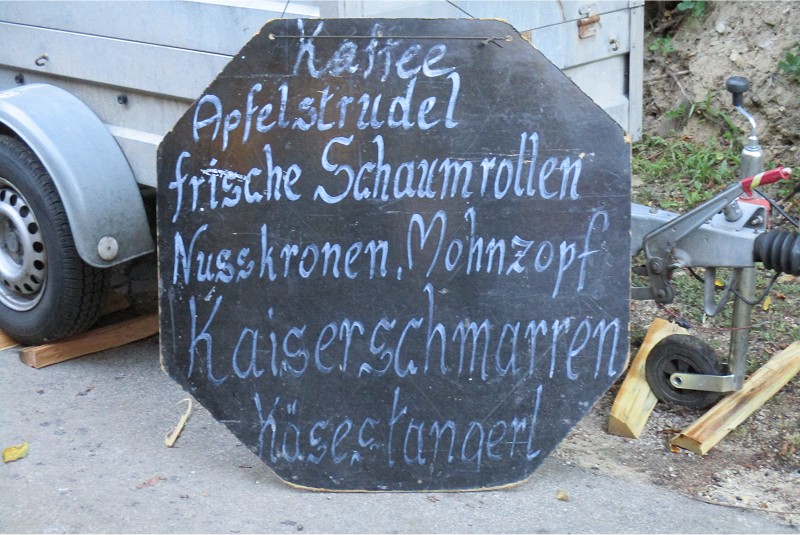 Kaffee
Apfelstrudel
frische Schaumrollen
Nusskronen, Mohnzopf
Kaiserschmarren
Käsestangerl